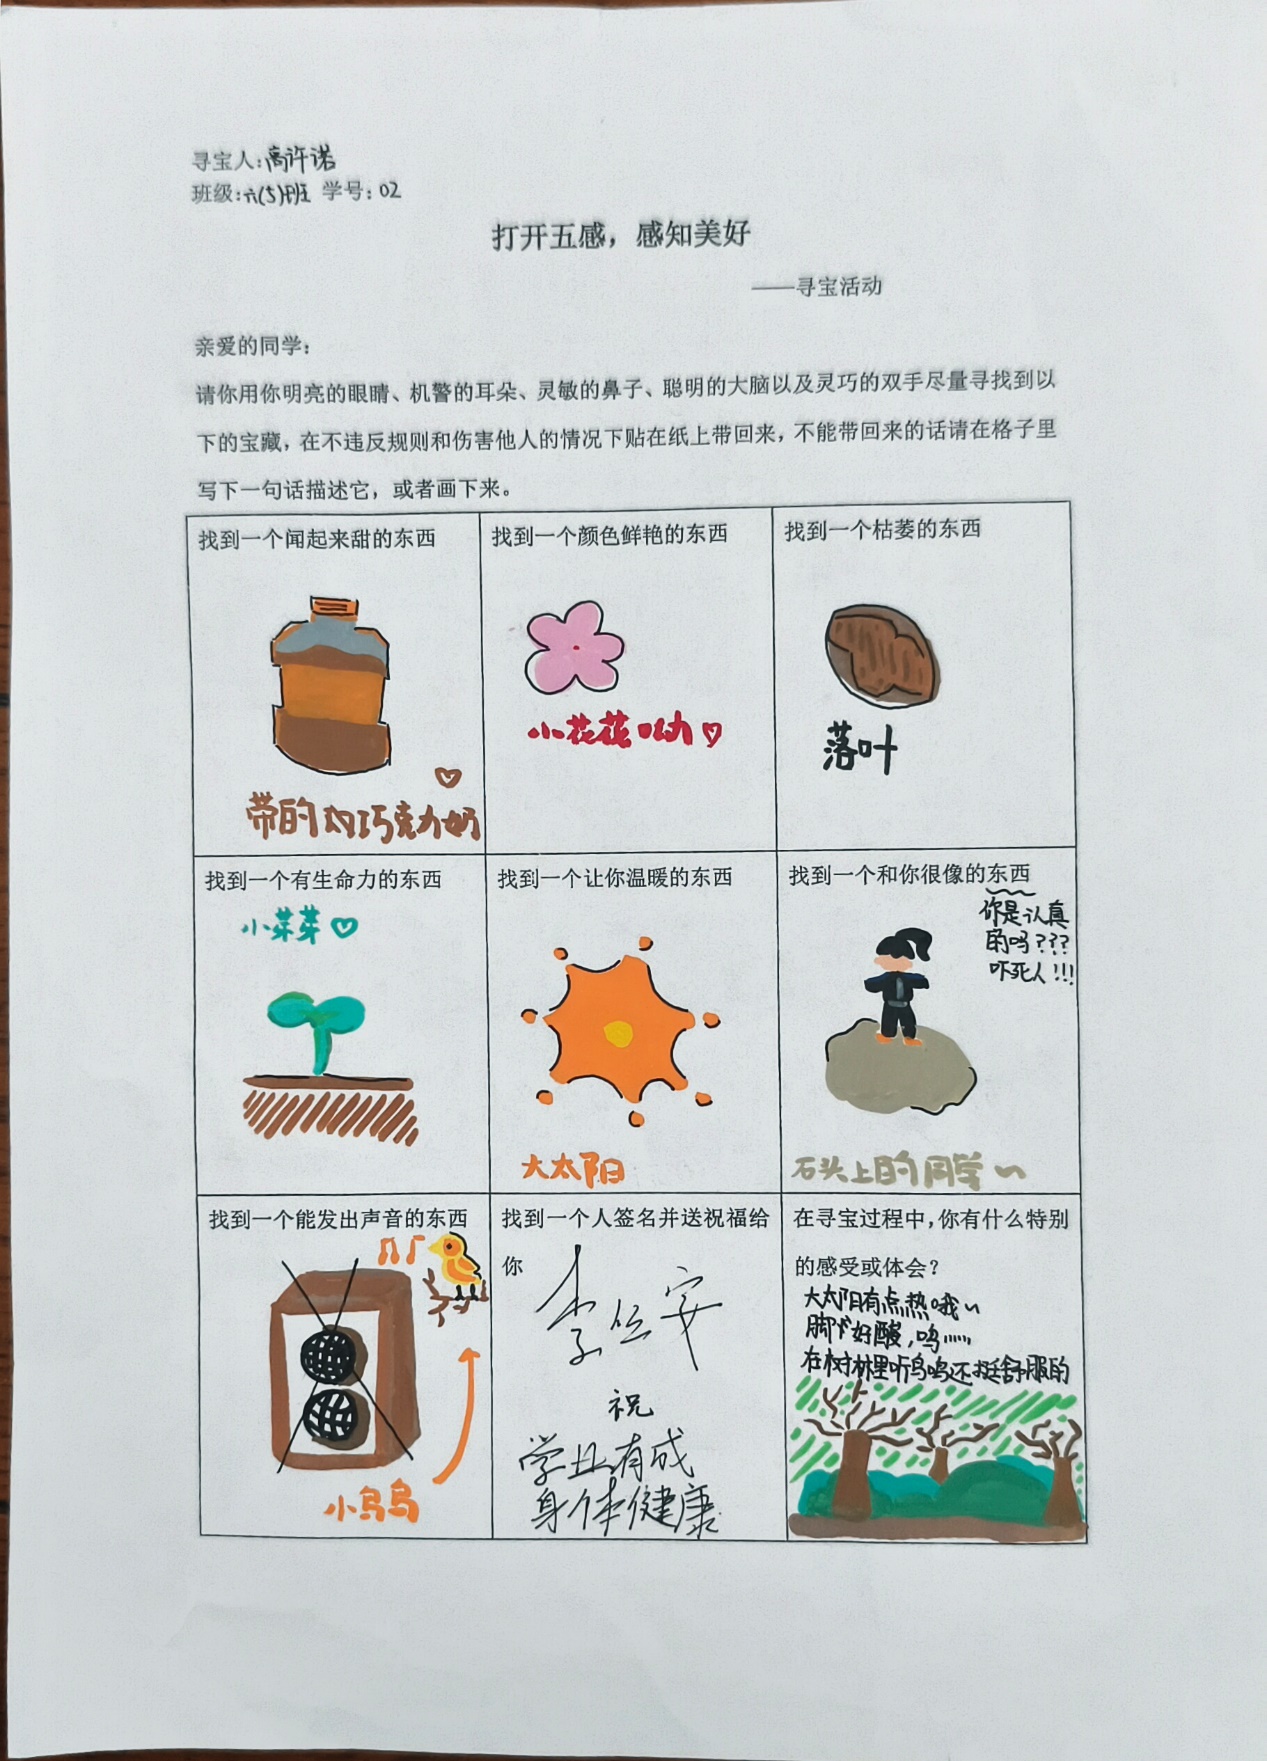 寻宝人:高许诺
班级:六(5)班 学号:02
打开五感，感知美好
——寻宝活动
亲爱的同学：
请你用你明亮的眼睛、机警的耳朵、灵敏的鼻子、聪明的大脑以及灵巧的双手尽量寻找到以
下的宝藏，在不违反规则和伤害他人的情况下贴在纸上带回来，不能带回来的话请在格子里
写下一句话描述它，或者画下来。
找到一个闻起来甜的东西
带的 巧克力奶
找到一个颜色鲜艳的东西
小花花呦
找到一个枯萎的东西
落叶
找到一个有生命力的东西
小芽芽
找到一个让你温暖的东西
大太阳
找到一个和你很像的东西
你是认真
的吗???
吓死人!!!
石头上的同学~
找到一个能发出声音的东西
小鸟鸟
找到一个人签名并送祝福给
你
李 安
祝
学业有成
身体健康
在寻宝过程中，你有什么特别
的感受或体会？
大太阳有点热哦~
脚下好酸，呜……
在树林里听鸟鸣还挺舒服的